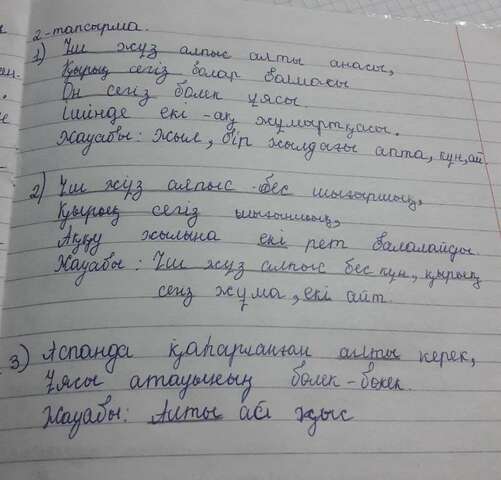 2-тапсырма.
1) Үш жүз алпыс алты анасы,
Қырық сегіз болар баласы
Он сегіз бөлек ұясы.
Ішінде екі-ақ жұмыртқасы.
Жауабы: жыл, бір жылдағы апта, күн, ай
2) Үш жүз алпыс бес шығыршық,
Қырық сегіз
Аққу жылына екі рет балалайды.
Жауабы: Үш жүз алпыс бес күн, қырық
сегіз жұма, екі айт.
3) Аспанда қаһарланған алты керек,
Ұясы атауының бөлек-бөлек.
Жауабы: Алты ай қыс